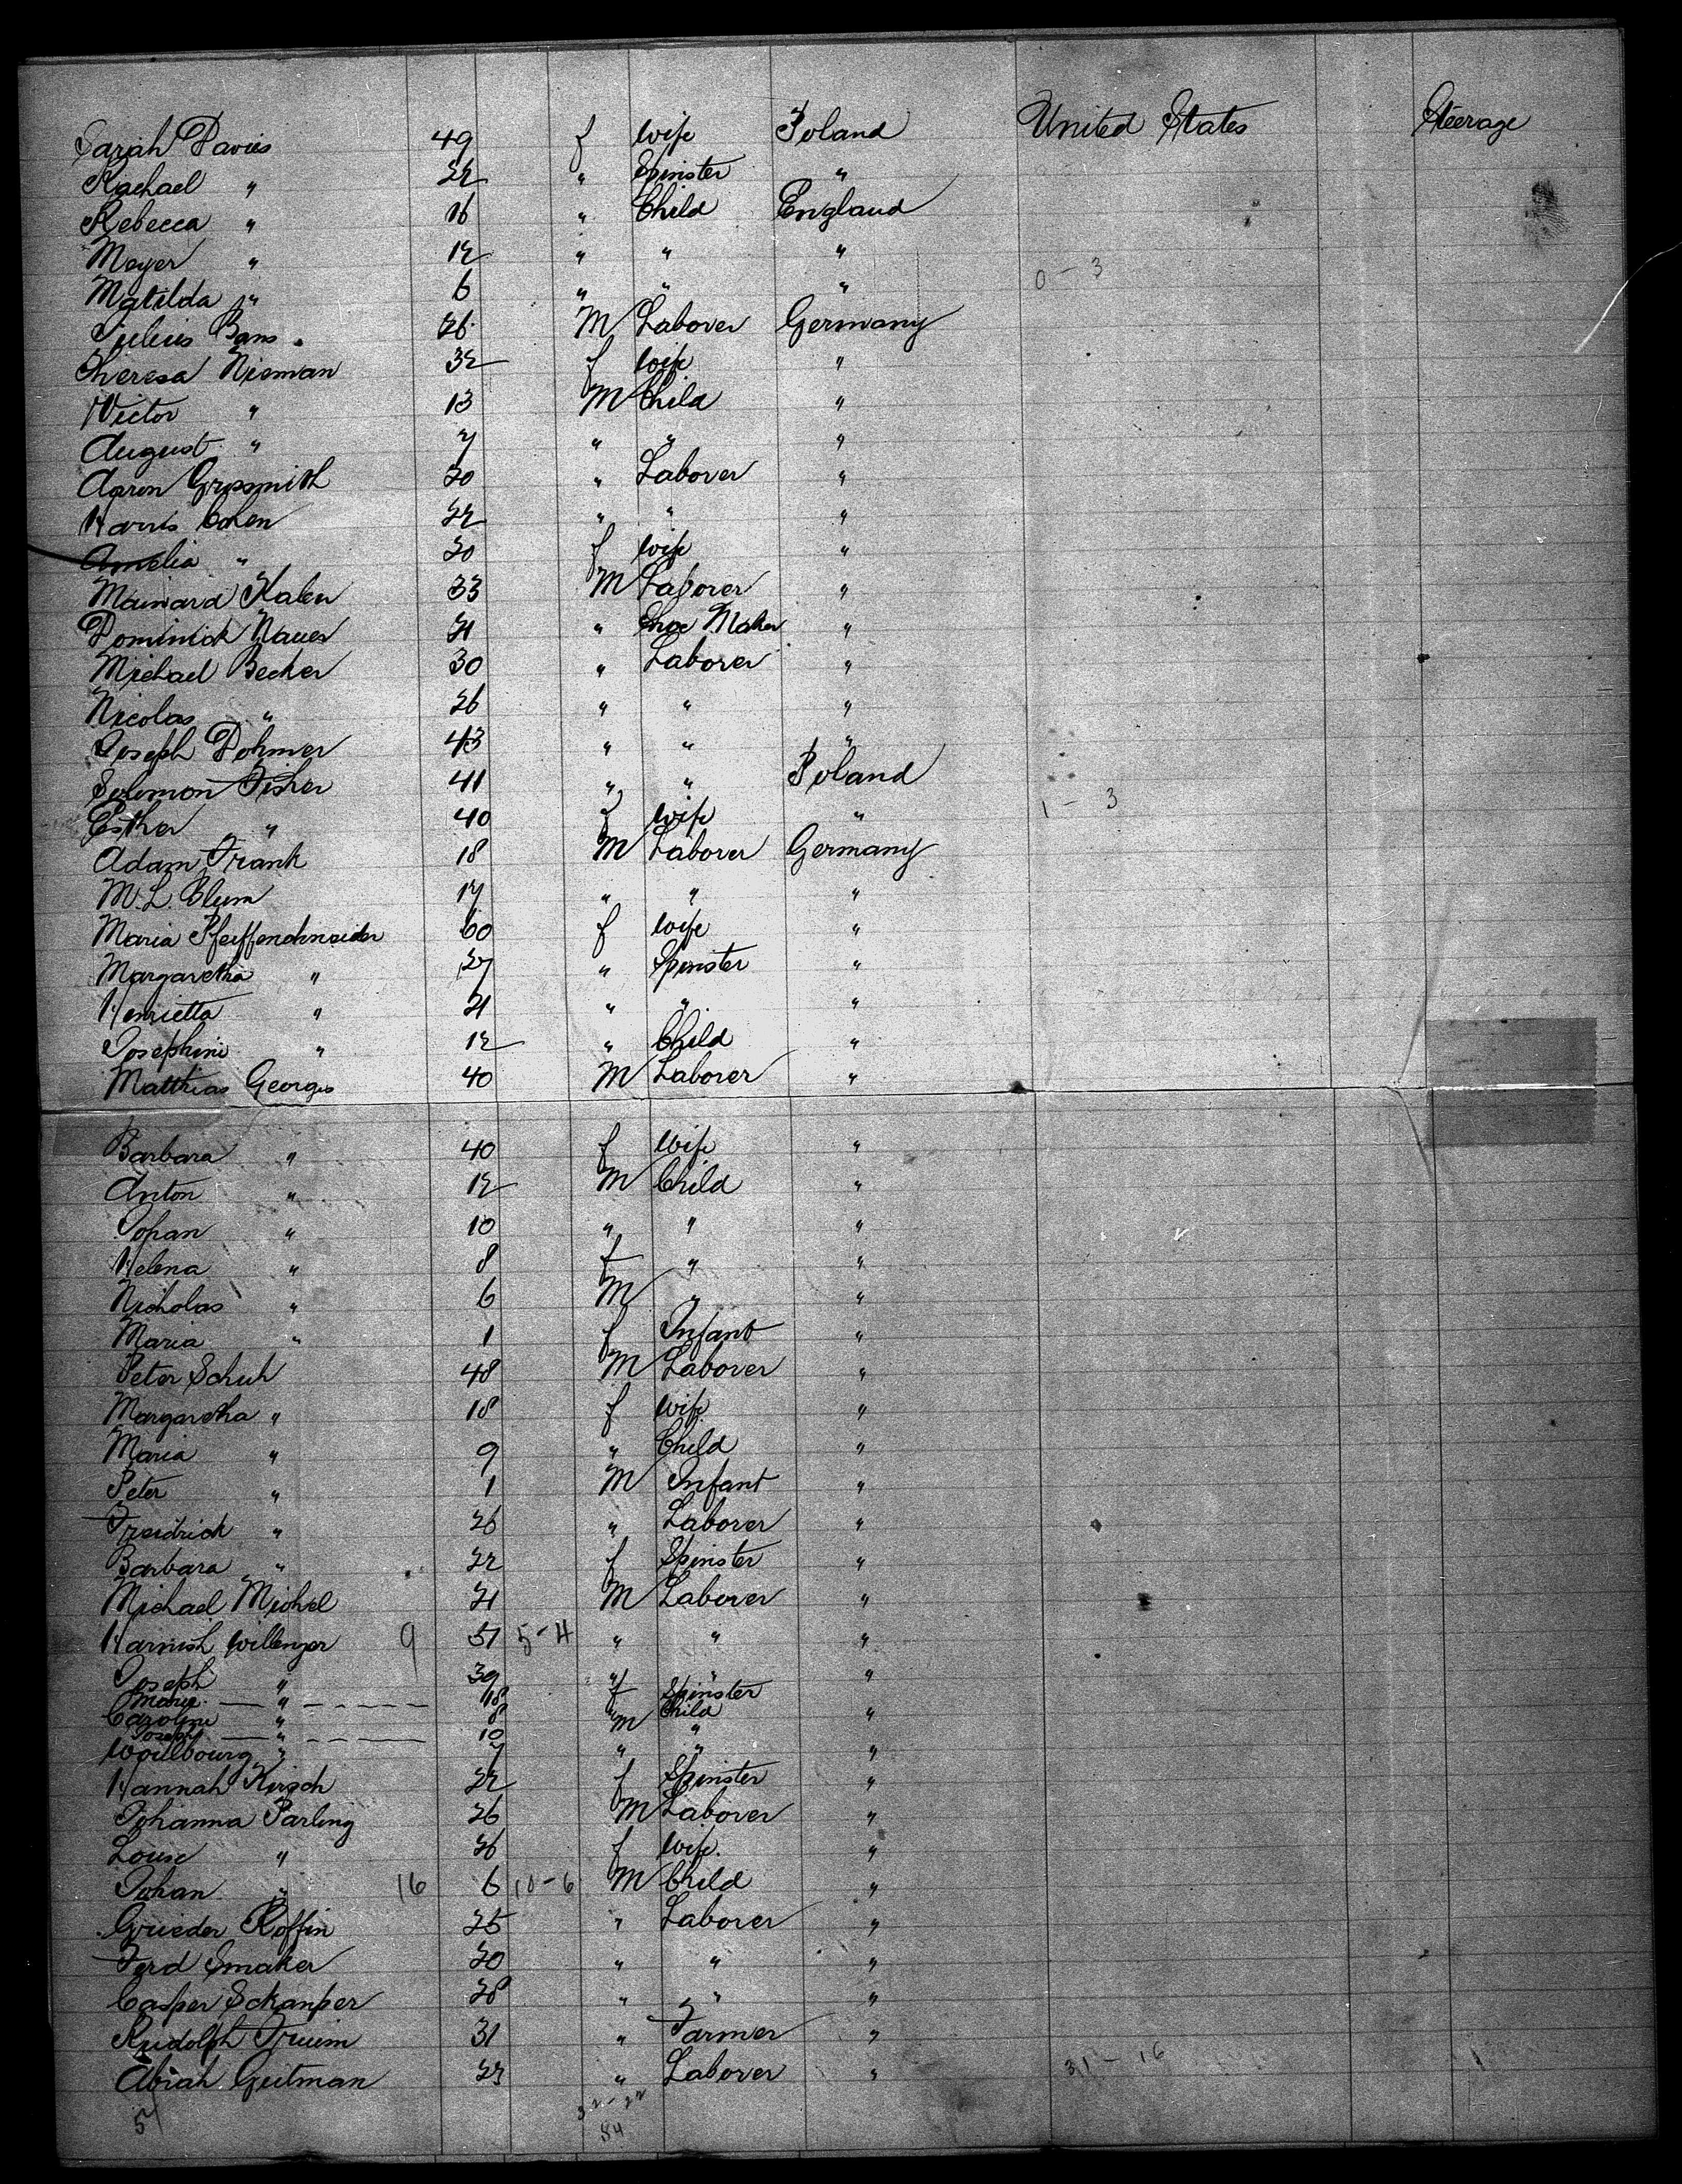 Sarah Davies 49 f Wife Poland United States Steerage
Rachael " 22 " Spinster "
Rebecca " 16 " Child England
Meyer " 12 " " "
Matilda " 6 " " " 0 - 3
Julius Bans 26 M Laborer Germany
Theresa Nieman 32 f Wife "
Victor " 13 M Child "
August " 7 " " "
Aaron Grosmith 20 " Laborer "
Harris Cohen 22 " " "
Amelia " 20 f Wife "
Mainard Kalen 33 M Laborer "
Dominick Nauer 21 " Shoe Maker "
Michael Becker 30 " Laborer "
Nicolas " 26 " " "
Joseph Dohmer 43 " " "
Solomon Fisher 41 " " Poland
Esther " 40 f Wife " 1 - 3
Adam Frank 18 M Laborer Germany
M. L. Blum 17 " " "
Maria Pfeiffenchneider 60 f Wife "
Margaretha " 27 " Spinster "
Henrietta " 21 " " "
Josephine " 12 " Child "
Matthias Georges 40 M Laborer "
Barbara " 40 f Wife "
Anton " 12 M Child "
Johan " 10 " " "
Helena " 8 f " "
Nicholas " 6 M " "
Maria " 1 f Infant "
Peter Schuh 48 M Laborer "
Margaretha " 18 f Wife "
Maria " 9 " Child "
Peter " 1 M Infant "
Freidrick " 26 " Laborer "
Barbara " 22 f Spinster "
Michael Michel 21 M Laborer "
Harnish Willenger 9 51 5 - 4 " " "
Joseph " 39 " " "
Marie " 18 f Spinster
Caroline " 8 " Child "
Joseph " 10 M "
Woulbourg " 7 " " "
Hannah Kirsch 22 f Spinster "
Johanna Parling 26 M Laborer "
Louise " 26 f Wife "
Johan " 16 6 10 - 6 M Child "
Grieder Roffin 25 " Laborer "
Ferd Smaker 20 " " "
Casper Schanper 28 " " "
Rudolph Fruim 31 " Farmer "
Abiah Geitman 23 " Laborer " 31 - 16
84